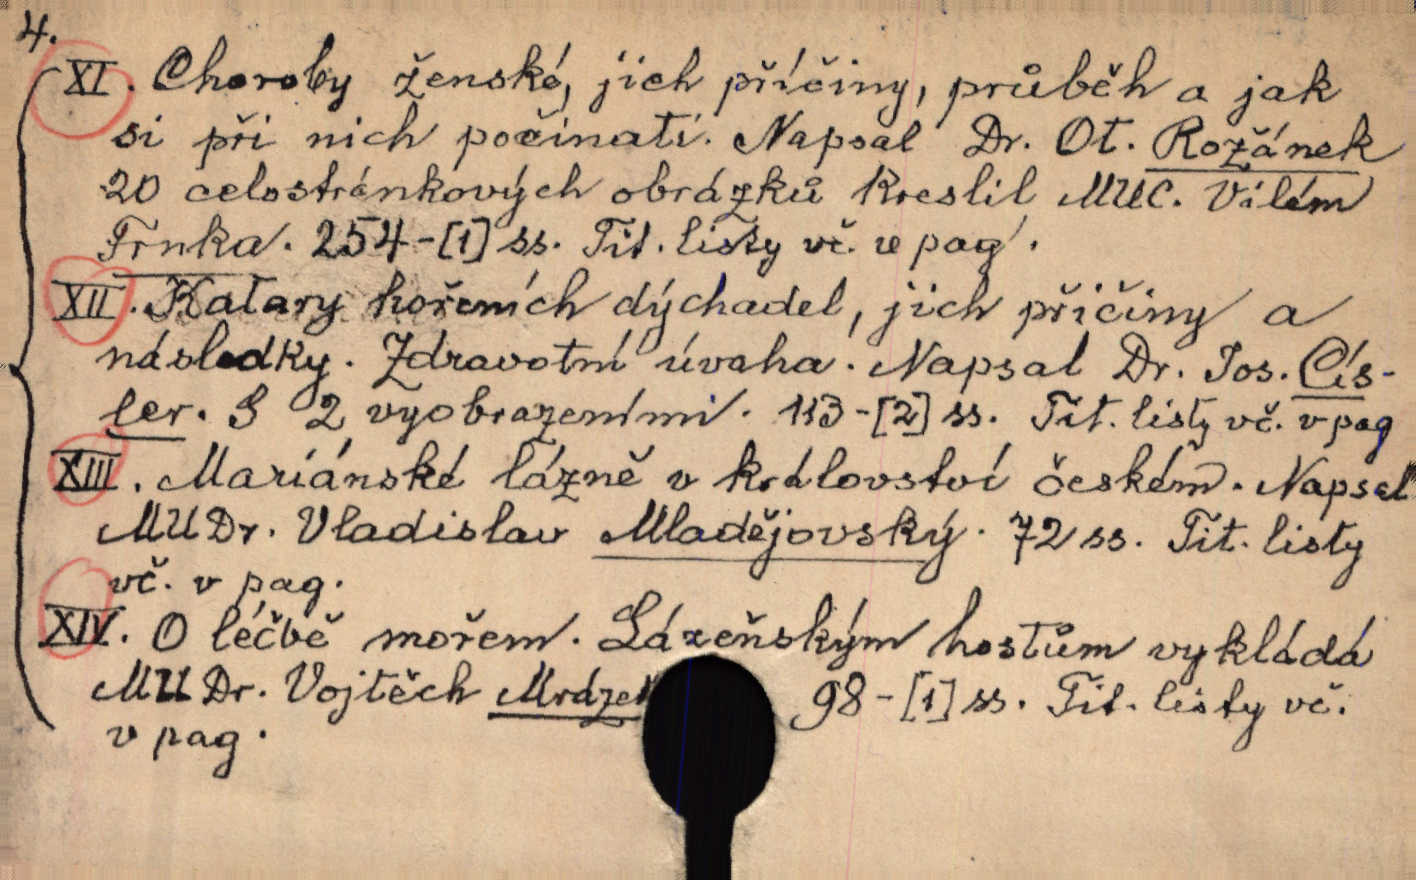 4.
XI. Choroby ženské, jich příčiny, průběh a jak
si při nich počínati. Napsal Dr. Ot. Rožánek
20 celostránkových obrázků Kreslil MUC. Vilém
Trnka. 254-[1] ss. Tit. listy vč. v pag.
XII. Katary hořeních dýchadel, jich příčiny a
následky. Zdravotní úvaha. Napsal Dr. Jos. Cís-
ler. S 2 vyobrazeními. 113-[2] ss. Tit. listy vč. v pag
XIII. Mariánské lázně v království českém. Napsal
MUDr. Vladislav Mladějovský. 72 ss. Tit. listy
vč. v pag.
XIV. O léčbě mořem. Lázeňským hostům vykládá
MUDr. Vojtěch Mrázek 98-[1] ss. Tit. listy vč.
v pag.